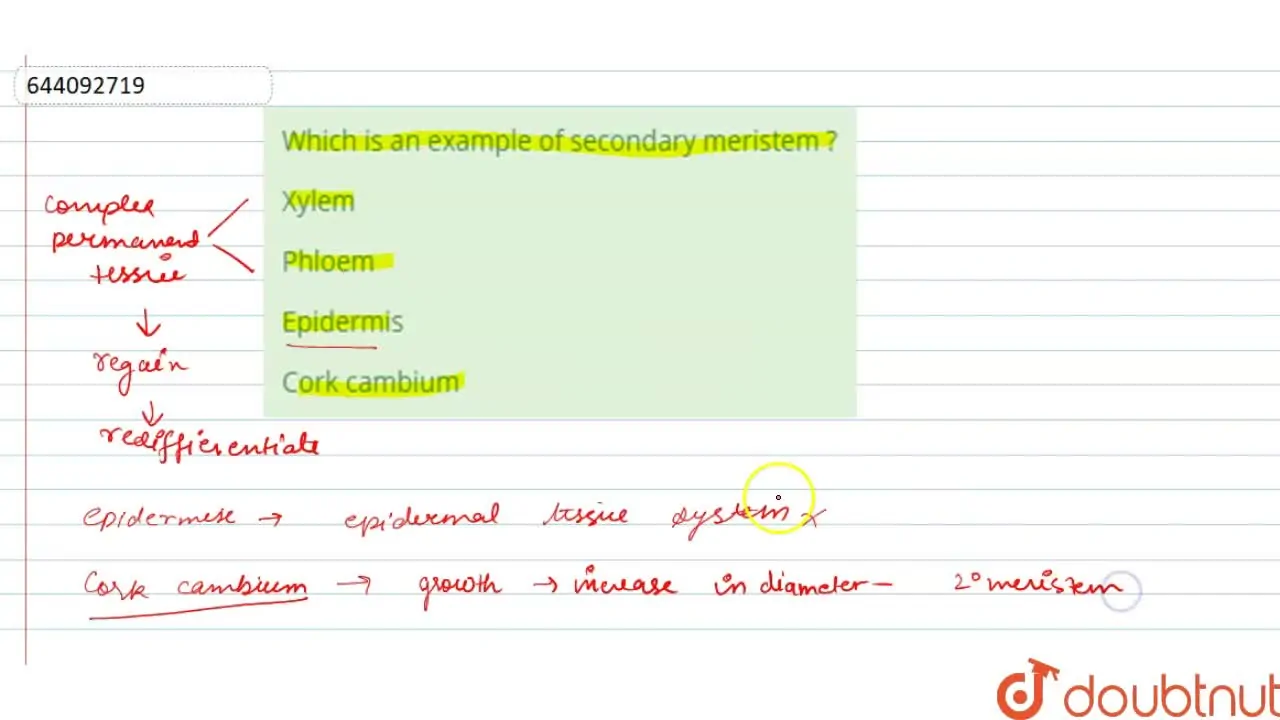 644092719
Which is an example of secondary meristem ?
Xylem
Phloem
Epidermis
Cork cambium
complex
permanend
tissue
regain
redifferentiate
epidermise → epidermal tissue system x
Cork cambium → growth → increase in diameter - 2° meristem
doubtnut